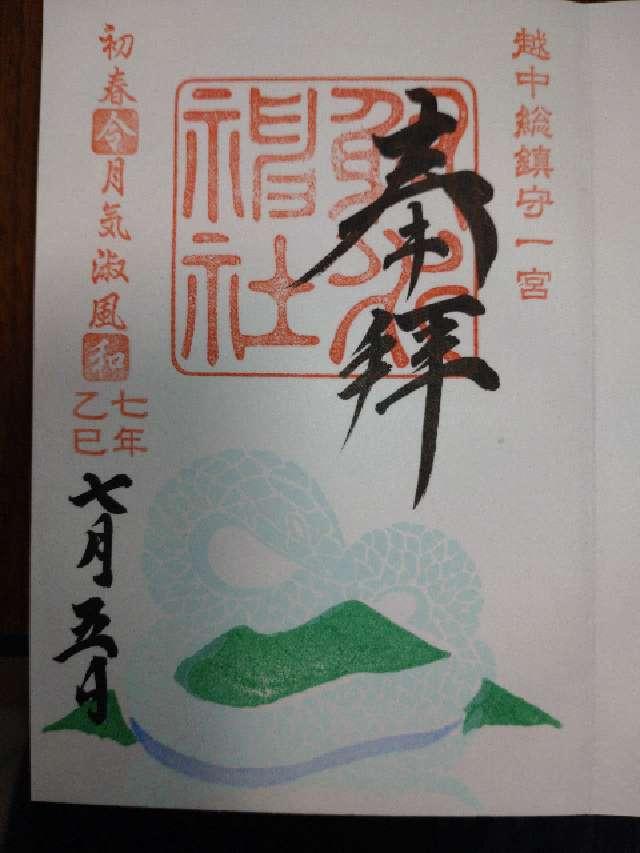 越中総鎮守一宮
奉拝
射水
神社
初春令月気淑風和
七年
乙巳
七月五日